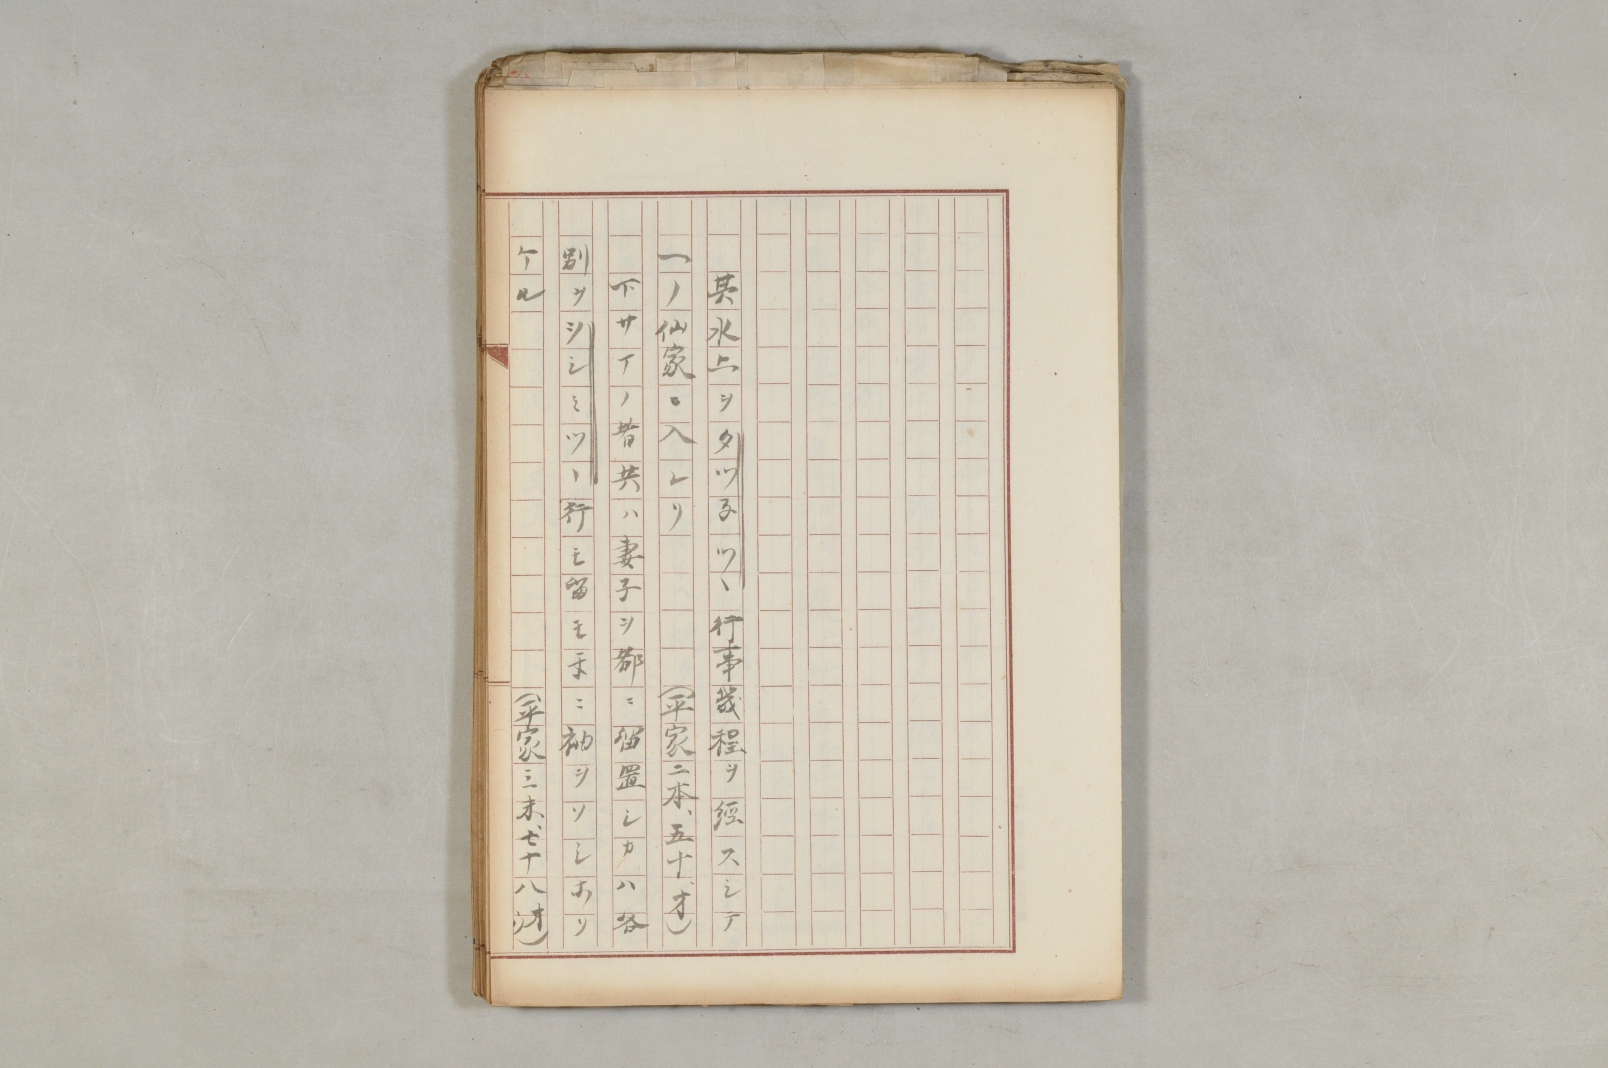 其水上ヲタツネツヽ行事幾程ヲ經スシテ
一ノ仙家ニ入レリ　（平家二本、五十、オ）
下サイノ者共ハ妻子ヲ都ニ留置シカハ各
別ヲヲシミツヽ行モ留モ互ニ袖ヲソシホリ
ケル　（平家三末、七十八オ）